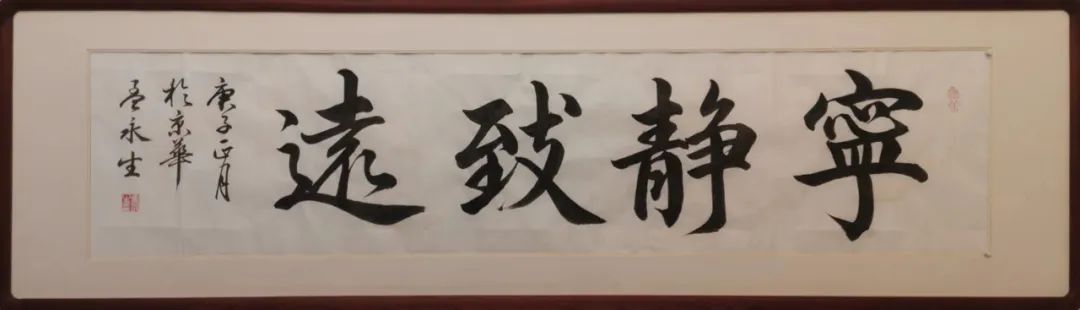 寧静致遠
庚子正月
於京華
孟永生